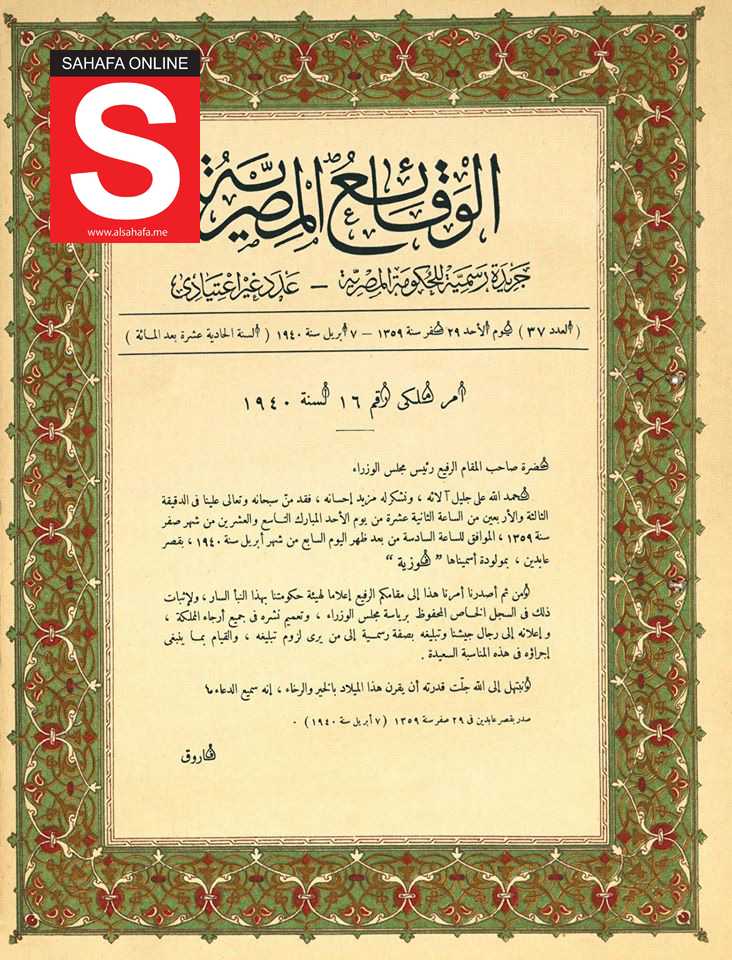 SAHAFA ONLINE
S
www.alsahafa.me
الوقائع المصرية
جريدة رسمية للحكومة المصرية – عدد غير اعتيادى
( العدد ٣٧ ) يوم الأحد ٢٩ صفر سنة ١٣٥٩ – ٧ ابريل سنة ١٩٤٠ ( السنة الحادية عشرة بعد المائة )
أمر ملكى رقم ١٦ لسنة ١٩٤٠
حضرة صاحب المقام الرفيع رئيس مجلس الوزراء
نحمد الله على جليل آلائه ، ونشكر له مزيد إحسانه ، فقد منّ سبحانه وتعالى علينا فى الدقيقة
الثالثة والأربعين من الساعة الثانية عشرة من يوم الأحد المبارك التاسع والعشرين من شهر صفر
سنة ١٣٥٩ ، الموافق للساعة السادسة من بعد ظهر اليوم السابع من شهر أبريل سنة ١٩٤٠ ، بقصر
عابدين ، بمولودة أسميناها " فوزية "
ومن ثم أصدرنا أمرنا هذا إلى مقامكم الرفيع إعلاما لهيئة حكومتنا بهذا النبأ السار ، ولإثبات
ذلك فى السجل الخاص المحفوظ برياسة مجلس الوزراء ، وتعميم نشره فى جميع أرجاء المملكة ،
وإعلانه إلى رجال جيشنا وتبليغه بصفة رسمية إلى من يرى لزوم تبليغه ، والقيام بما ينبغى
إجراؤه فى هذه المناسبة السعيدة .
ونبتهل إلى الله جلّت قدرته أن يقرن هذا الميلاد بالخير والرخاء ، إنه سميع الدعاء ما
صدر بقصر عابدين فى ٢٩ صفر سنة ١٣٥٩ ( ٧ أبريل سنة ١٩٤٠ ) .
فاروق